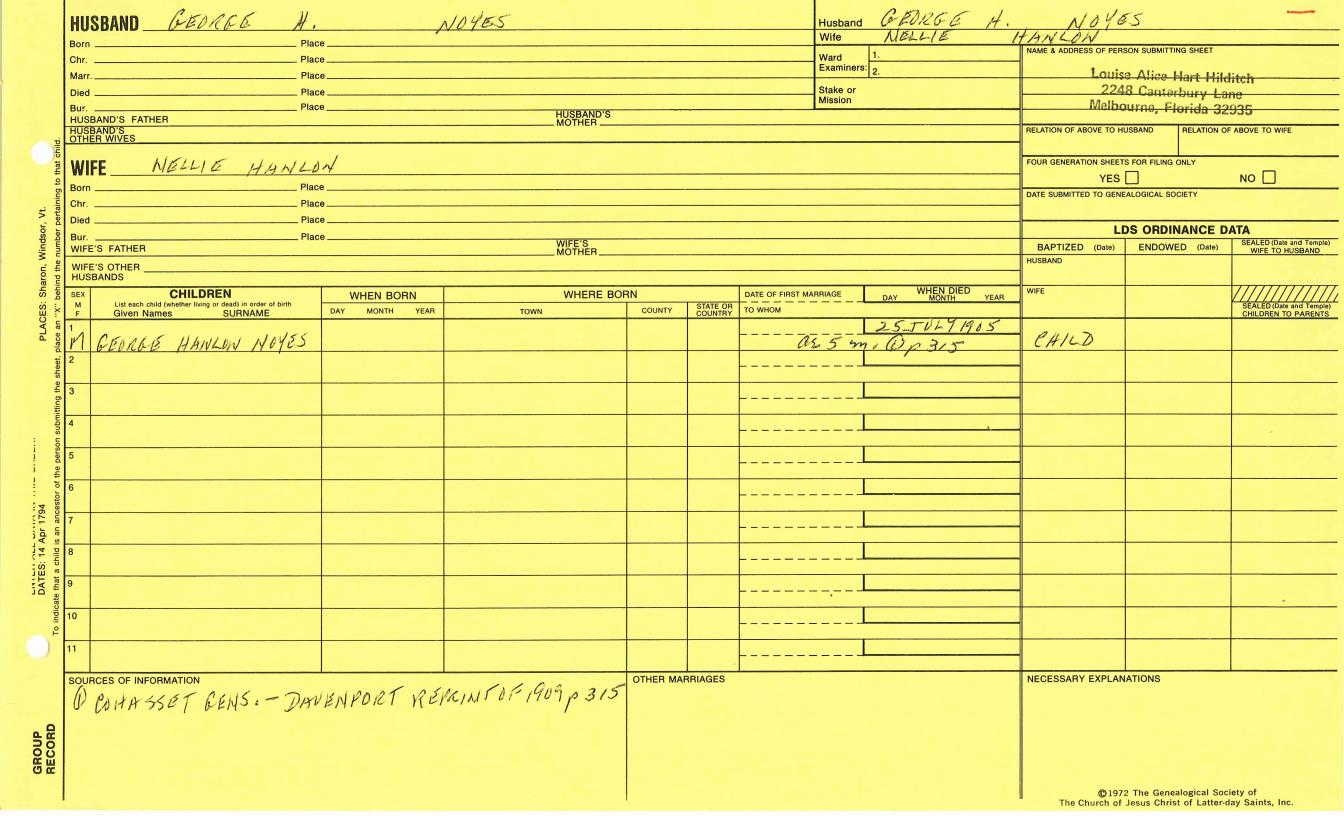 HUSBAND GEORGE H. NOYES
Born Place
Chr. Place
Marr. Place
Died Place
Bur. Place
HUSBAND'S FATHER HUSBAND'S MOTHER
HUSBAND'S OTHER WIVES
Husband GEORGE H. NOYES
Wife NELLIE HANLON
Ward Examiners: 1.
2.
Stake or Mission
NAME & ADDRESS OF PERSON SUBMITTING SHEET
Louise Alice Hart Hilditch
2248 Canterbury Lane
Melbourne, Florida 32935
RELATION OF ABOVE TO HUSBAND RELATION OF ABOVE TO WIFE
FOUR GENERATION SHEETS FOR FILING ONLY
YES NO
DATE SUBMITTED TO GENEALOGICAL SOCIETY
WIFE NELLIE HANLON
Born Place
Chr. Place
Died Place
Bur. Place
WIFE'S FATHER WIFE'S MOTHER
WIFE'S OTHER HUSBANDS
LDS ORDINANCE DATA
BAPTIZED (Date) ENDOWED (Date) SEALED (Date and Temple) WIFE TO HUSBAND
HUSBAND
WIFE
SEALED (Date and Temple) CHILDREN TO PARENTS
SEX M F
CHILDREN
List each child (whether living or dead) in order of birth
Given Names SURNAME
WHEN BORN
DAY MONTH YEAR
WHERE BORN
TOWN COUNTY STATE OR COUNTRY
DATE OF FIRST MARRIAGE
TO WHOM
WHEN DIED
DAY MONTH YEAR
1 25 JULY 1905
M GEORGE HANLON NOYES ae 5 m. ① p 315 CHILD
2
3
4
5
6
7
8
9
10
11
SOURCES OF INFORMATION
① COHASSET GENS. - DAVENPORT REPRINT OF 1909 p 315
OTHER MARRIAGES
NECESSARY EXPLANATIONS
©1972 The Genealogical Society of
The Church of Jesus Christ of Latter-day Saints, Inc.
PLACES: Sharon, Windsor, Vt.
DATES: 14 Apr 1794
To indicate that a child is an ancestor of the person submitting the sheet, place an "X" behind the number pertaining to that child.
GROUP RECORD